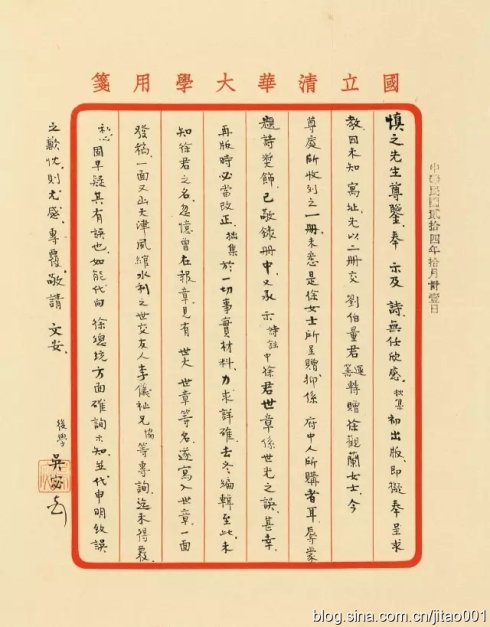 國立清華大學用箋
中華民國貳拾四年拾月廿壹日
慎之先生尊鑒奉 示及 詩無任欣感 拙集 初出版即擬奉呈求
教因未知 寓址先以二册交 劉伯量君 運籌 轉贈徐觀蘭女士今
尊處所收到之一册未悉是徐女士所呈贈抑係 府中人所購者耳辱蒙
題詩獎飾已敬錄册中又承 示 詩註 中徐君世章係世光之誤甚幸
再版時必當改正 拙集 於一切事實材料力求詳確去冬編輯至此未
知徐君之名忽憶曾在報章見有 世章等名遂寫入世章一面
發稿一面又函天津風綰水利之世交友人李儀祉兄 協 等專詢迄未得覆
私心固早疑其有誤也如能代向 徐總統方面確詢示知並代申明致誤
之歉忱則尤感專覆敬請 文安
後學 吳宓 上
blog.sina.com.cn/jitao001